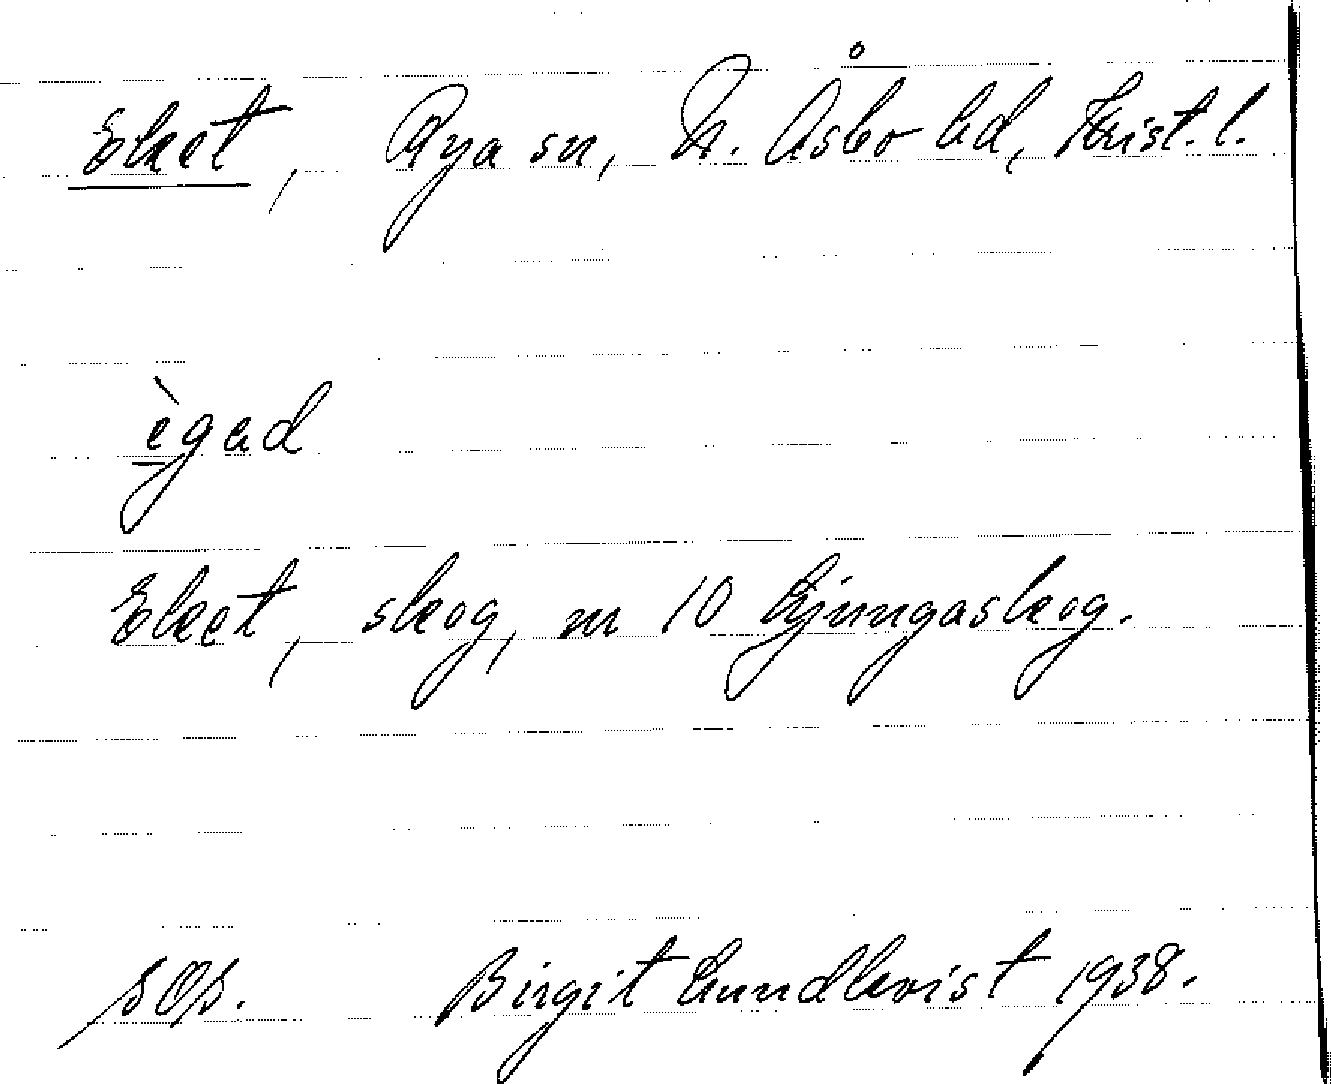 Eket, Rya sn, N. Åsbo hd, Krist. l.
ègad
Eket, skog, nr 10 Ljungaskog.
Birgit Lundkvist 1938.